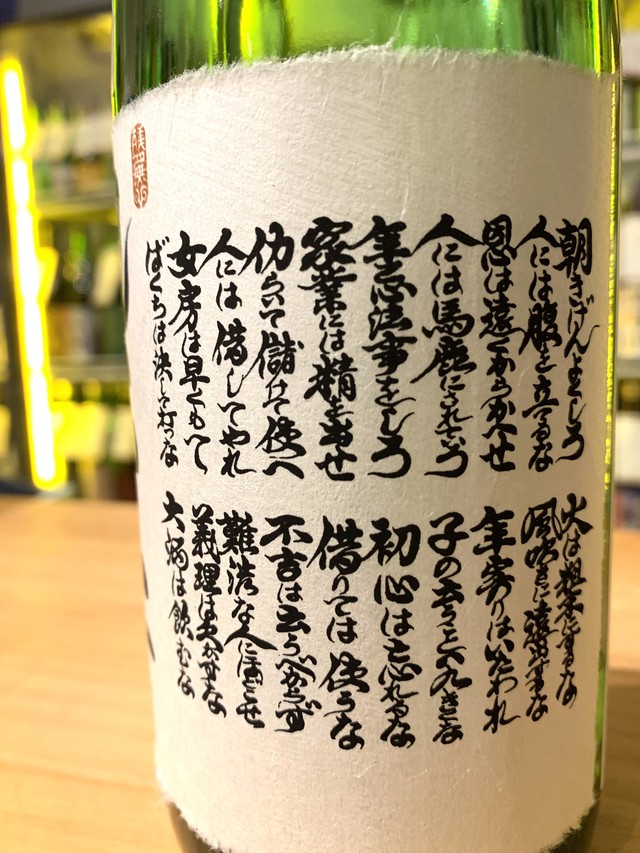 朝きげんよくしろ
人には腹を立てるな
恩は遠くからかへせ
人には馬鹿にされていろ
年忌法事をしろ
家業には精を出せ
仂らいて儲けて使へ
人には借してやれ
女房は早くもて
ばくちは決して打つな
火は粗末にするな
風吹きに遠出するな
年寄りはいたわれ
子の言うこと八九きくな
初心は忘れるな
借りては使うな
不吉は云うべからず
難渋な人にほどこせ
義理は欠かすな
大酒は飲むな